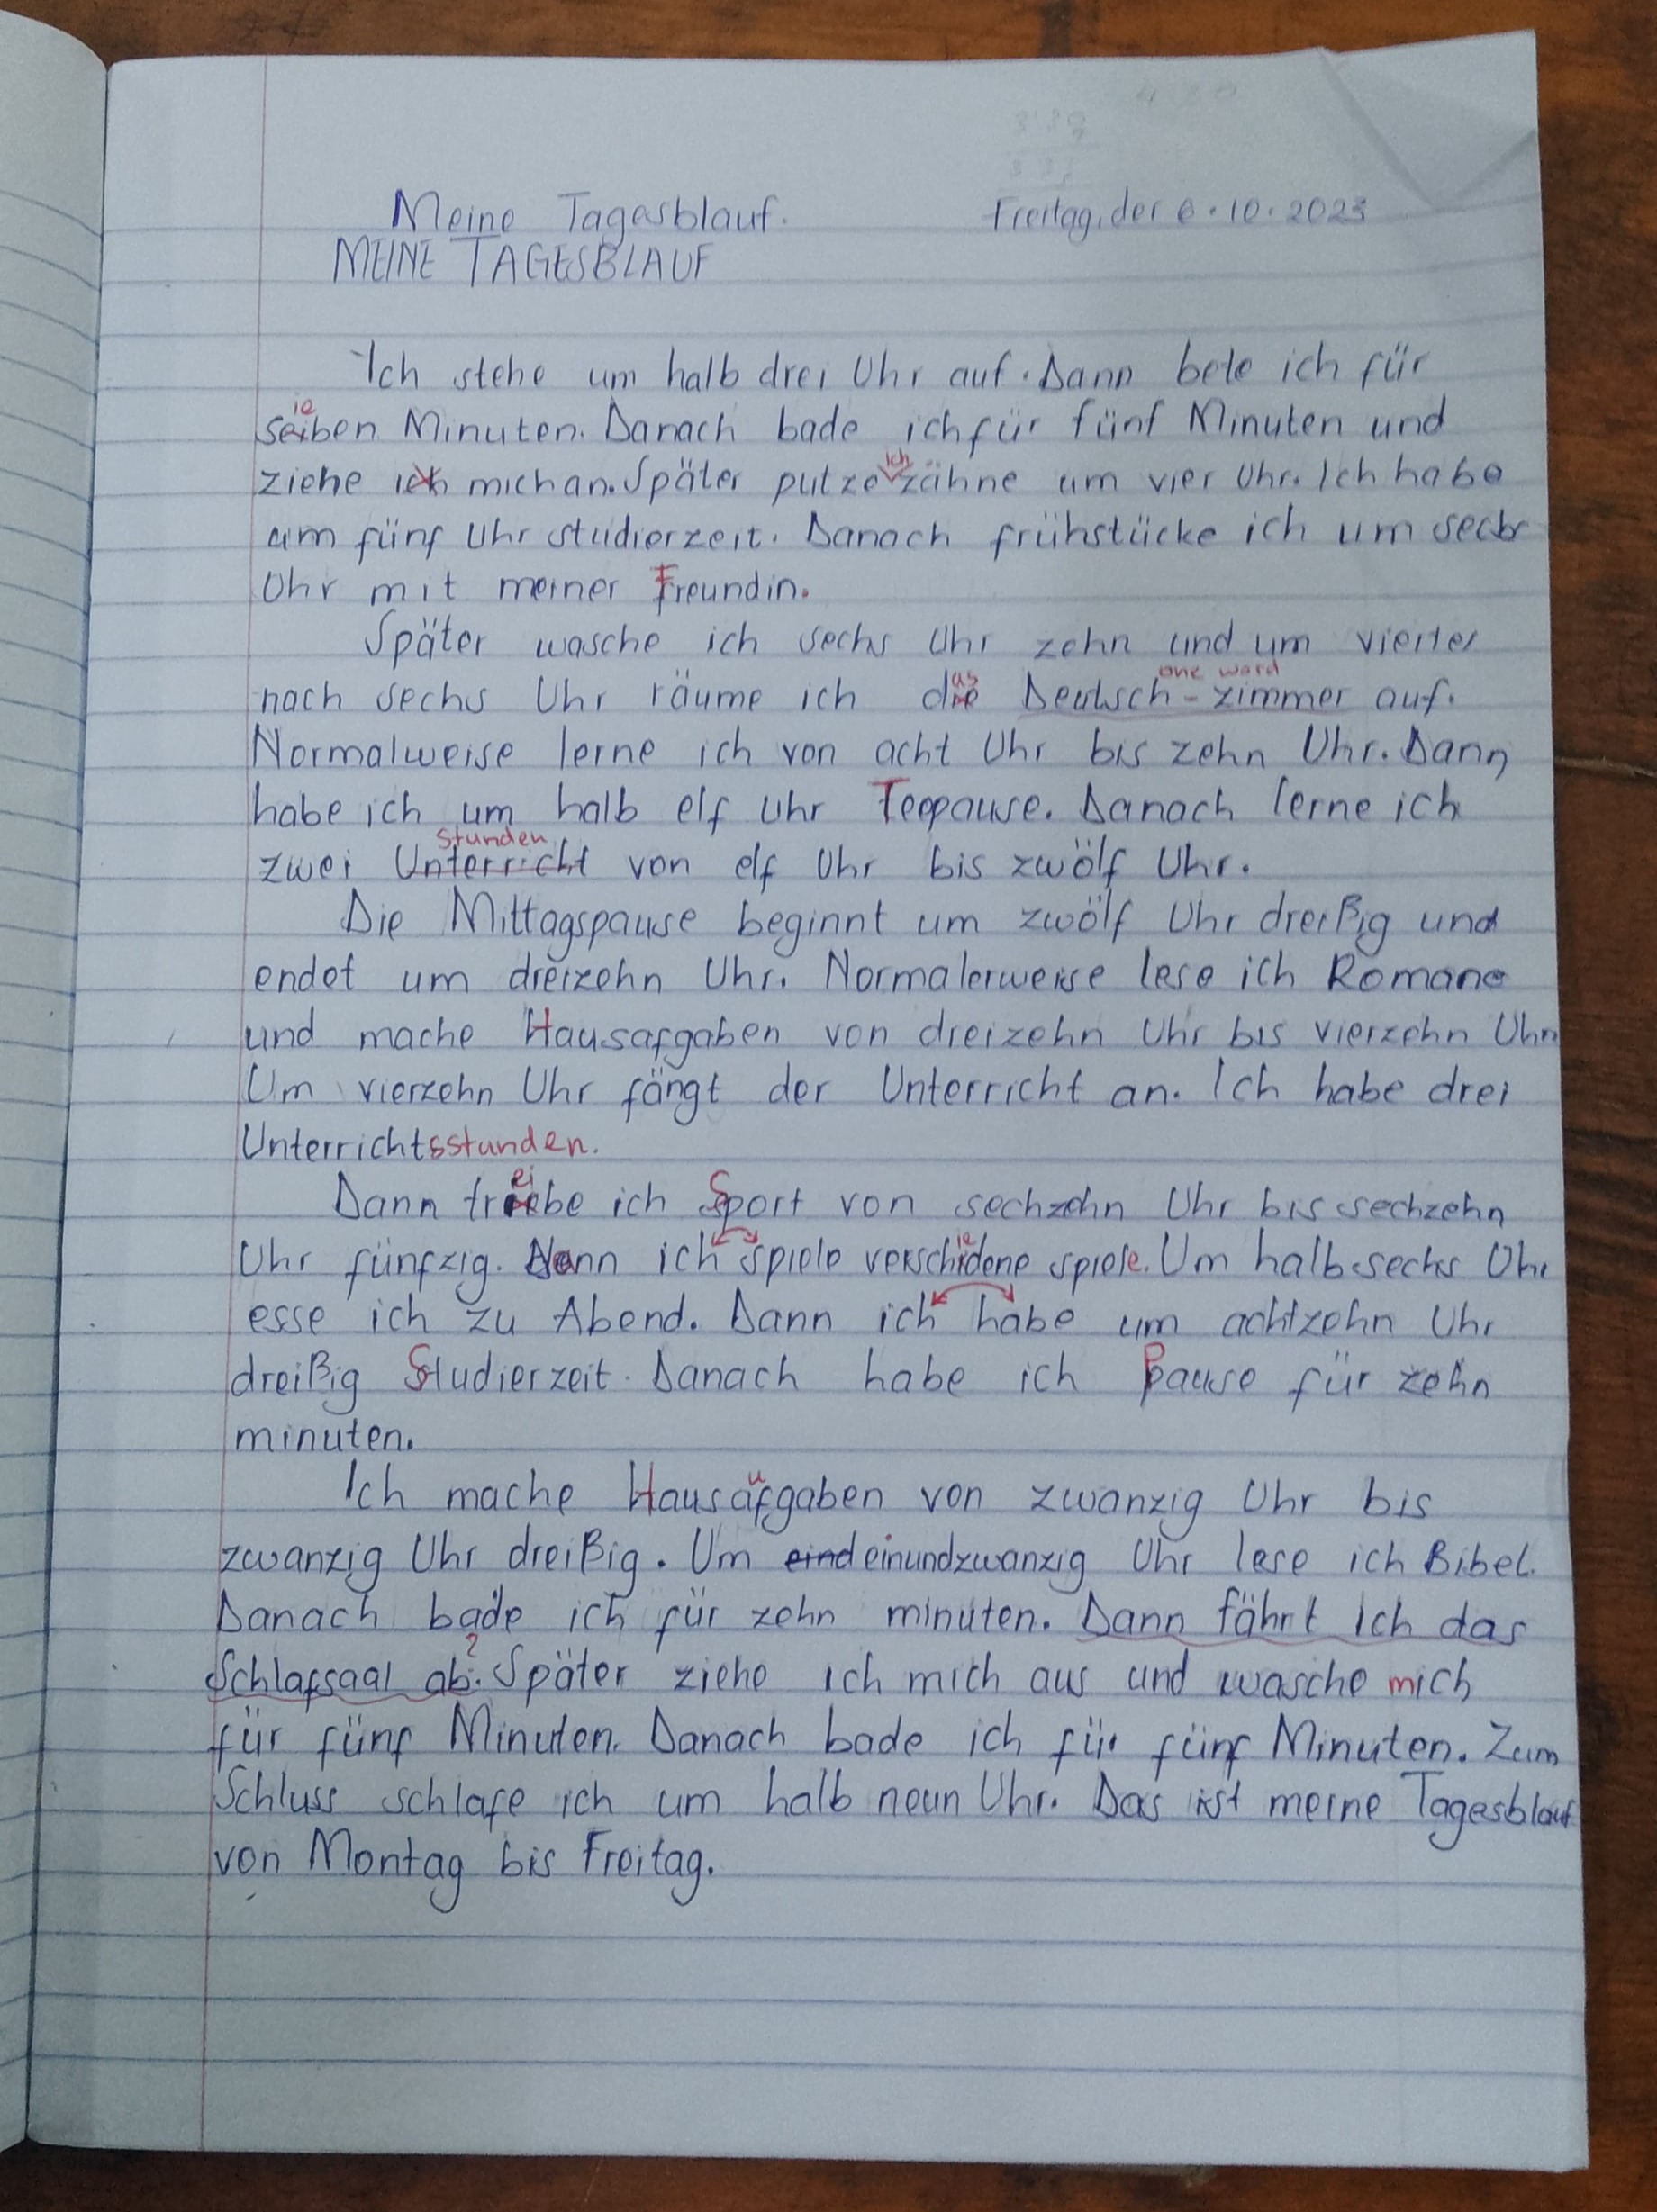 Meine Tagesblauf. Freitag, der 6.10.2023
MEINE TAGESBLAUF
Ich stehe um halb drei Uhr auf. Dann bete ich für
ie
seiben Minuten. Danach bade ich für fünf Minuten und
ich
ziehe ich mich an. Später putze zähne um vier Uhr. Ich habe
um fünf Uhr studierzeit. Danach frühstücke ich um sechs
Uhr mit meiner Freundin.
Später wasche ich sechs Uhr zehn und um viertel
as one word
nach sechs Uhr räume ich die Deutsch-zimmer auf.
Normalweise lerne ich von acht Uhr bis zehn Uhr. Dann
habe ich um halb elf Uhr Teepause. Danach lerne ich
Stunden
zwei Unterricht von elf Uhr bis zwölf Uhr.
Die Mittagspause beginnt um zwölf Uhr dreißig und
endet um dreizehn Uhr. Normalerweise lese ich Romane
und mache Hausafgaben von dreizehn Uhr bis vierzehn Uhr
Um vierzehn Uhr fängt der Unterricht an. Ich habe drei
Unterrichtsstunden.
ei
Dann triebe ich Sport von sechzehn Uhr bis sechzehn
ie
Uhr fünfzig. Dann ich spiele verschidene spiele. Um halb sechs Uhr
esse ich zu Abend. Dann ich habe um achtzehn Uhr
dreißig Studierzeit. Danach habe ich Pause für zehn
minuten.
u
Ich mache Hausafgaben von zwanzig Uhr bis
zwanzig Uhr dreißig. Um eind einundzwanzig Uhr lese ich Bibel.
Danach bade ich für zehn minuten. Dann fährt ich das
?
Schlafsaal ab. Später ziehe ich mich aus und wasche mich
für fünf Minuten. Danach bade ich für fünf Minuten. Zum
Schluss schlafe ich um halb neun Uhr. Das ist meine Tagesblauf
von Montag bis Freitag.